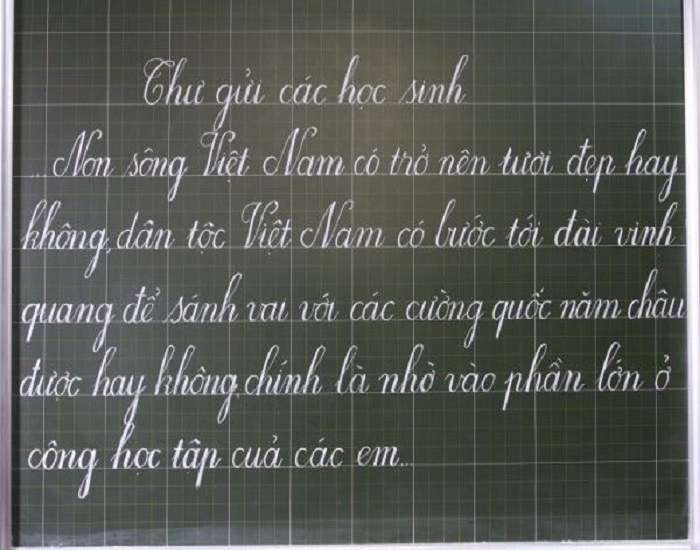 Thư gửi các học sinh
...Non sông Việt Nam có trở nên tươi đẹp hay
không, dân tộc Việt Nam có bước tới đài vinh
quang để sánh vai với các cường quốc năm châu
được hay không, chính là nhờ vào phần lớn ở
công học tập cuả các em...